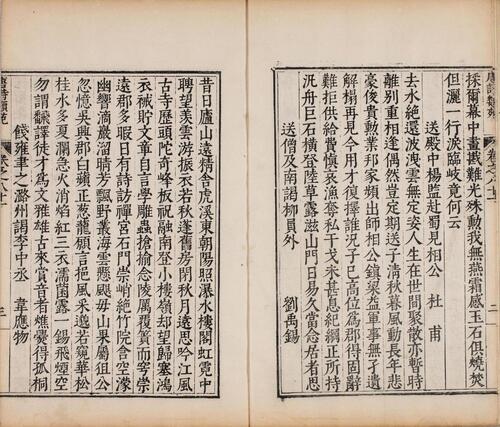 唐詩類苑
採爾幕中畫戢難光殊勳我無燕霜感玉石俱燒焚
但灑一行淚臨岐竟何云
送殿中楊監赴蜀見相公 杜甫
去水絕還波洩雲無定姿人生在世間聚散亦暫時
離別重相逢偶然豈定期送子清秋暮風動長年悲
豪俊貴勳業邦家頻出師相公鎮梁益軍事無孑遺
解榻再見今用才復擇誰況子已高位為郡得固辭
難拒供給費慎哀漁奪私干戈未甚息紀綱正所持
汎舟巨石橫登陸草露滋山門日易久當念居者思
送僧及南謁柳員外 劉禹錫
昔日廬山遠精舍虎溪東朝陽照瀑水樓閣虹霓中
騁望羨雲游振衣若秋蓬舊房閉秋月遠思吟江風
古寺歷頭陀奇峰板祝融南登小嶺却望歸塞鴻
衣裓貯文章自言學雕蟲搶榆念陵厲覆簣而穹崇
遠郡多暇日有詩訪禪宮石門崇峭絕竹院含空濛
幽響滴巖溜晴芳飄野叢海雲懸颶母山果屬狙公
忽憶吳興郡白蘋正蔥蘢願言挹風采邈若窺華松
桂水多夏瀾急火焰紅三衣濡菌露一錫飛煙空
勿謂翻譯徒才為文雅雄古來賞音者燋爨得孤桐
餞雍聿之潞州謁李中丞 韋應物
唐詩類苑 三